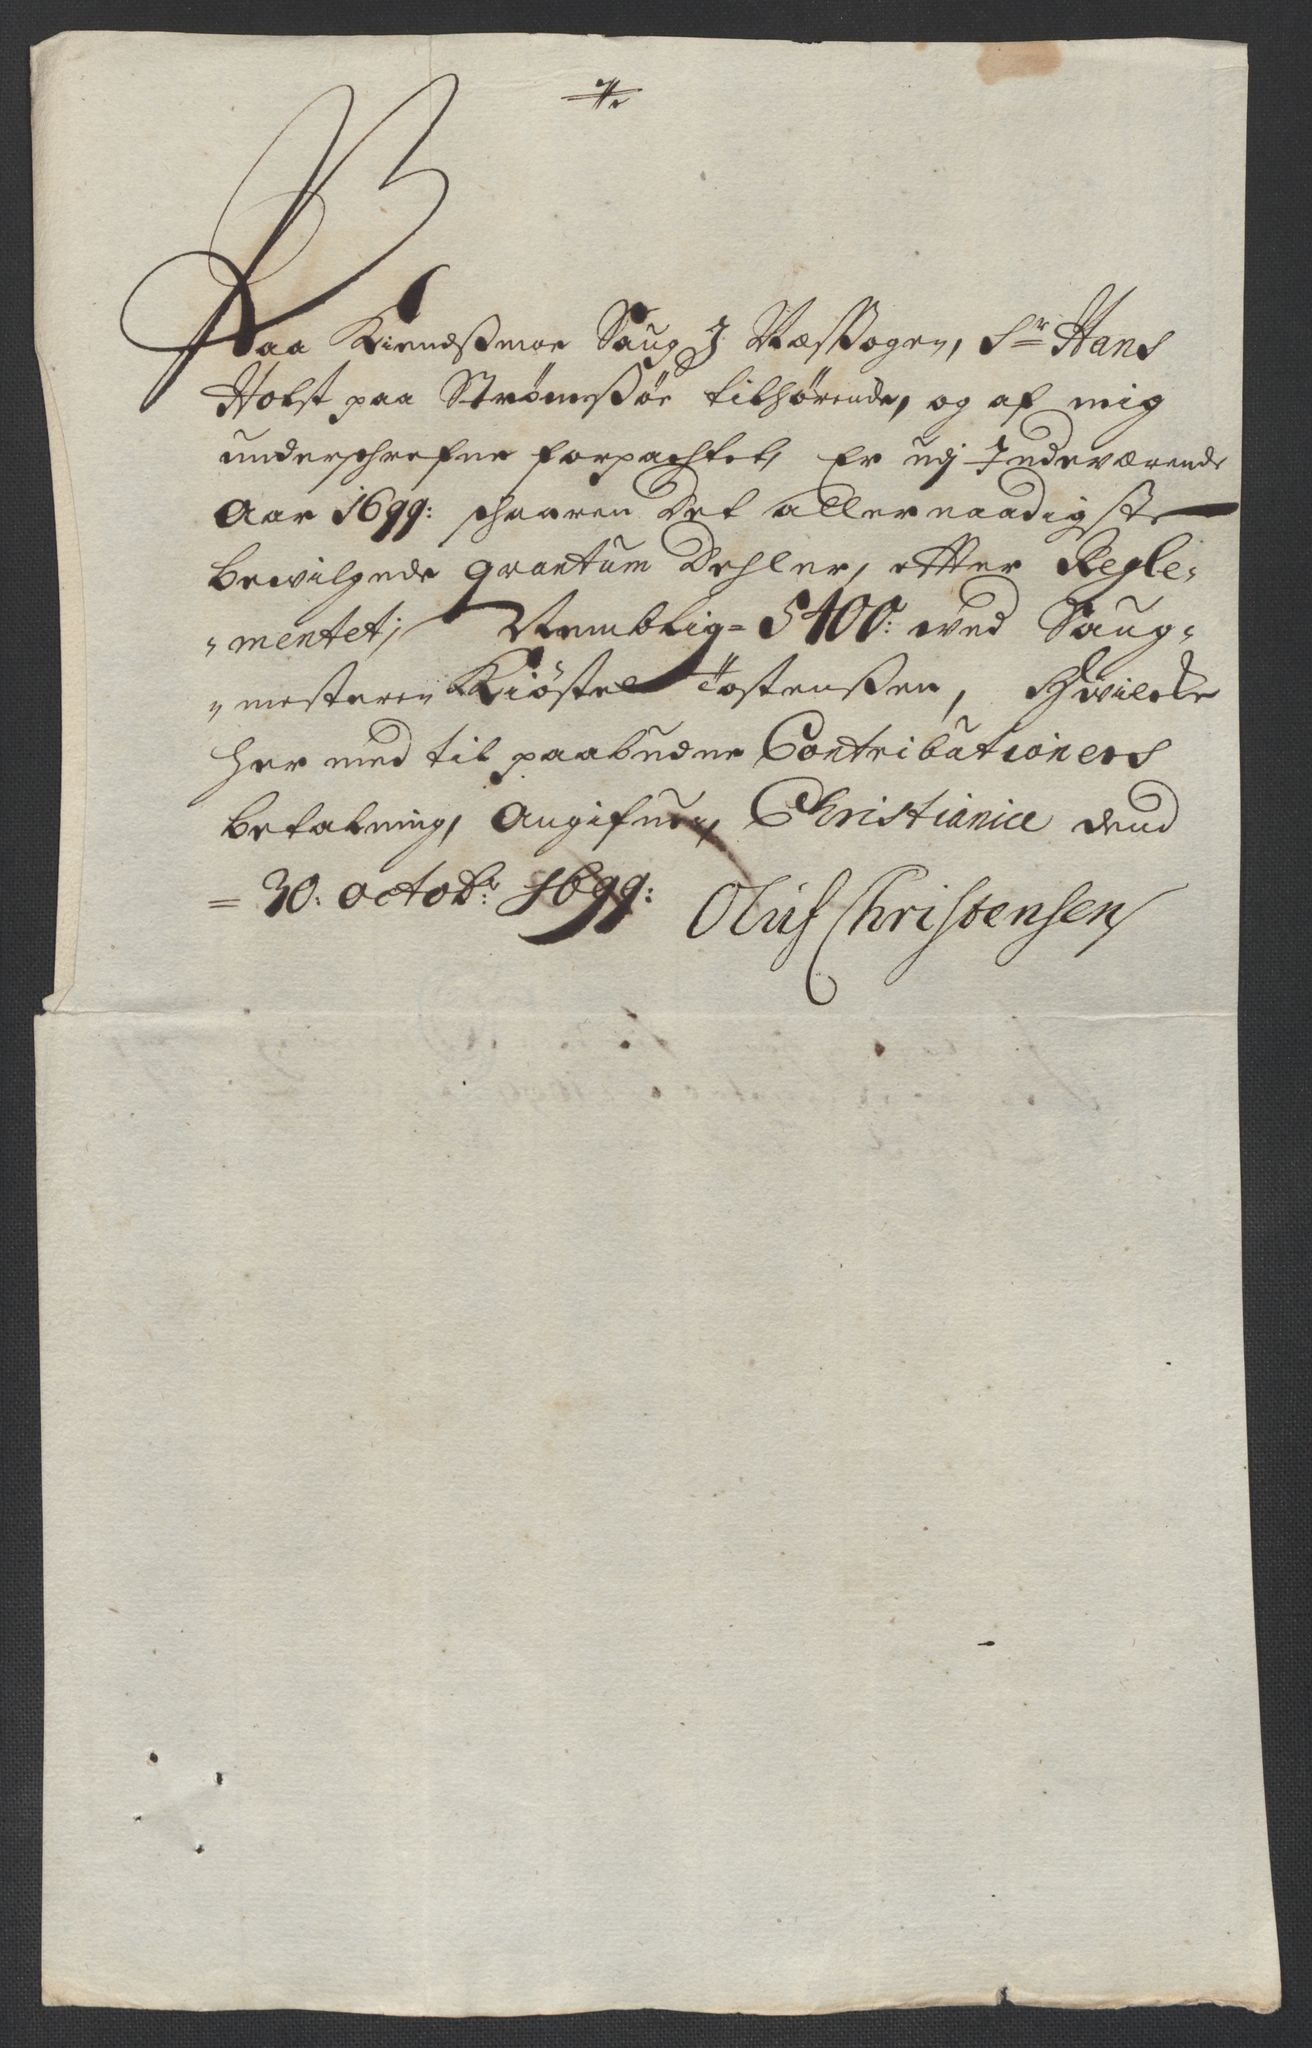 Paa Kiendsmoe Saug J Næssogen, Sr Hans
Holst paa Strømssøe tilhørende, og af mig
underschrefne forpachtet, Er udj Indeværende
Aar 1699: schaaren det allernaadigste
bewilgede qvantum dehler, effter Regle-
-mentet; Nemblig= 5400: wed Saug-
-mesteren Kiøstel Tostenssen, Hwilcke
her med til paabudne Contributioners
betalning, Angifues, Christiania dend
= 30. octobr: 1699: Oluf Christensen